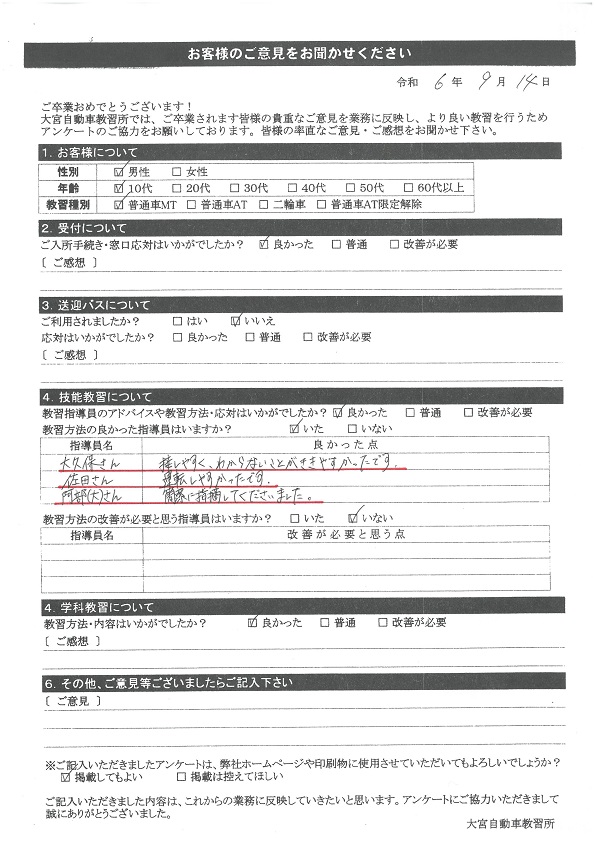 お客様のご意見をお聞かせください
令和 6 年 9 月 14 日
ご卒業おめでとうございます！
大宮自動車教習所では、ご卒業されます皆様の貴重なご意見を業務に反映し、より良い教習を行うため
アンケートのご協力をお願いしております。皆様の率直なご意見・ご感想をお聞かせ下さい。
1. お客様について
性別 ☑ 男性 □ 女性
年齢 ☑ 10代 □ 20代 □ 30代 □ 40代 □ 50代 □ 60代以上
教習種別 ☑ 普通車MT □ 普通車AT □ 二輪車 □ 普通車AT限定解除
2. 受付について
ご入所手続き・窓口応対はいかがでしたか？ ☑ 良かった □ 普通 □ 改善が必要
〔 ご感想 〕
3. 送迎バスについて
ご利用されましたか？ □ はい ☑ いいえ
応対はいかがでしたか？ □ 良かった □ 普通 □ 改善が必要
〔 ご感想 〕
4. 技能教習について
教習指導員のアドバイスや教習方法・応対はいかがでしたか？ ☑ 良かった □ 普通 □ 改善が必要
教習方法の良かった指導員はいますか？ ☑ いた □ いない
指導員名 良かった点
大久保さん 接しやすく、わからないことがききやすかったです。
佐田さん 運転しやすかったです。
阿部(大)さん 簡潔に指摘してくださいました。
教習方法の改善が必要と思う指導員はいますか？ □ いた ☑ いない
指導員名 改善が必要と思う点
4. 学科教習について
教習方法・内容はいかがでしたか？ ☑ 良かった □ 普通 □ 改善が必要
〔 ご感想 〕
6. その他、ご意見等ございましたらご記入下さい
〔 ご意見 〕
※ご記入いただきましたアンケートは、弊社ホームページや印刷物に使用させていただいてもよろしいでしょうか？
☑ 掲載してもよい □ 掲載は控えてほしい
ご記入いただきました内容は、これからの業務に反映していきたいと思います。アンケートにご協力いただきまして
誠にありがとうございました。
大宮自動車教習所